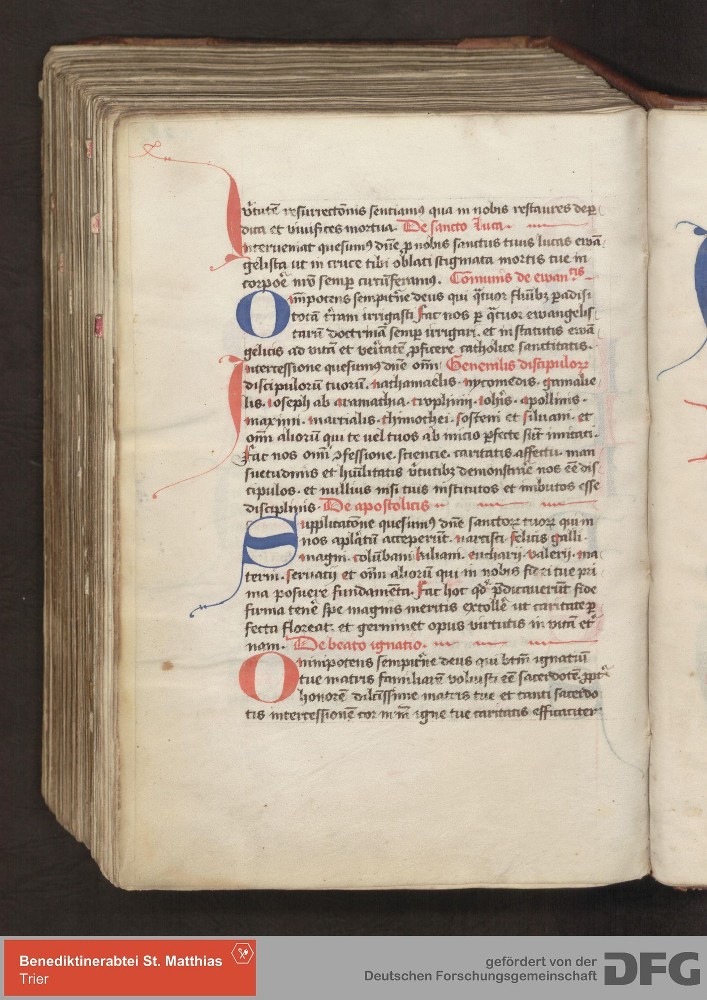 v̾tutē resurrectōnis sentiamꝰ qua in nobis restaures deꝑ
dita et viuifices mortua. De sancto luca.
Interueniat quesumꝰ dn̄e ꝓ nobis sanctus tuus lucas ewā
gelista ut in cruce tibi oblati stigmata mortis tue in
corpoꝛe nr̄o semꝑ circūferamꝰ. Cōmunis de ewantis
Om̄ipotens sempit̾ne deus qui q̾tuor flūībꝫ ꝑadisi
totā t̾ram irrigasti fac nos ꝑ q̾tuor ewangelis
tarū doctrinā semꝑ irrigari. et in statutis ewā
gelicis ad vitā et veritatē ꝓficere catholice sanctitatis.
Intercessione quesumꝰ dn̄e om̄ Generalis discipuloꝝ
discipulorū tuorū. nathanaelis. nycomedis. gamalie
lis. ioseph ab aramathia. trophimi. ioh̄is. apollinis.
maximi. marcialis. thimothei. sosteni et siluani. et
om̄ alioruū qui te vel tuos ab inicio ꝑfecte sūt imitati.
Fac nos om̄ ꝯfessione. sciencie. caritatis affectu. man
suetudinis et hūilitatis v̾tutibꝫ demonstrare nos eē dis
cipulos. et nullius nisi tuis institutos et imbutos esse
disciplinis. De apostolicis
Supplicatōne quesumꝰ dn̄e sanctoꝝ tuoꝝ qui in
nos apl̄atū acceperūt. narcisci. felicis galli.
magni. colūbani kiliani. eucharii. valerii. ma
terni. seruatii et om̄ aliorū qui in nobis fidei tue pri
ma posuere fundamēta. Fac hoc qd̾ p̄dicauerūt fide
firma tenē spe magnis meritis extollē ut caritate ꝑ
fecta floreat. et germinet opus virtutis in vitā et̾
nam. De beato ignatio.
Omnipotens sempit̾ne deus qui btm̄ ignatiū
tue matris familiarē voluisti eē sacerdotē ꝓpt̾
honorē dilcissime matris tue et tanti sacerdo
tis intercessionē cor nr̄m igne tue caritatis efficaciter
Benediktinerabtei St. Matthias
Trier
gefördert von der
Deutschen Forschungsgemeinschaft
DFG